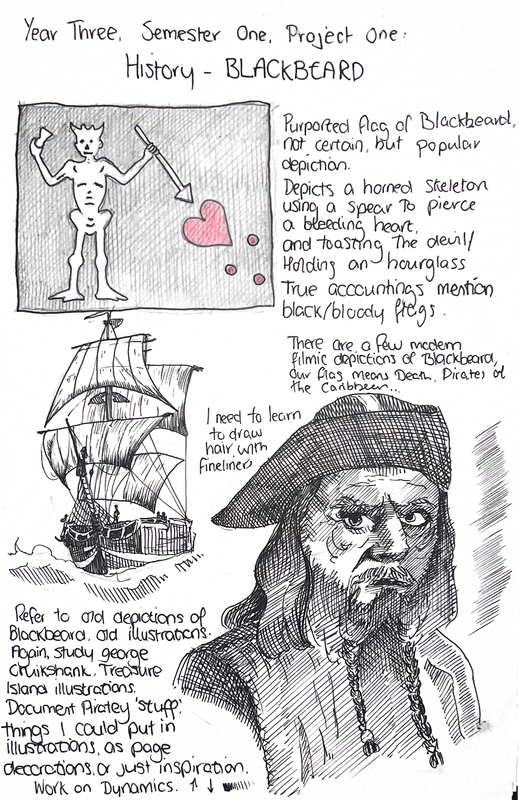 Year Three, Semester One, Project One:
History - BLACKBEARD
Purported flag of Blackbeard,
not certain, but popular
depiction.
Depicts a horned skeleton
using a spear To pierce
a bleeding heart,
and toasting The devil/
Holding an hourglass
True accountings mention
black/bloody flags.
There are a few modern
filmic depictions of Blackbeard,
Our flag means Death, Pirates of
the Caribbean...
I need to learn
to draw
hair with
fineliners
Refer to old depictions of
Blackbeard, old illustrations.
Again, study george
Cruikshank, Treasure
Island illustrations.
Document Piratey 'stuff',
things I could put in
illustrations, as page
decorations, or just inspiration.
Work on Dynamics. ↑ ↓